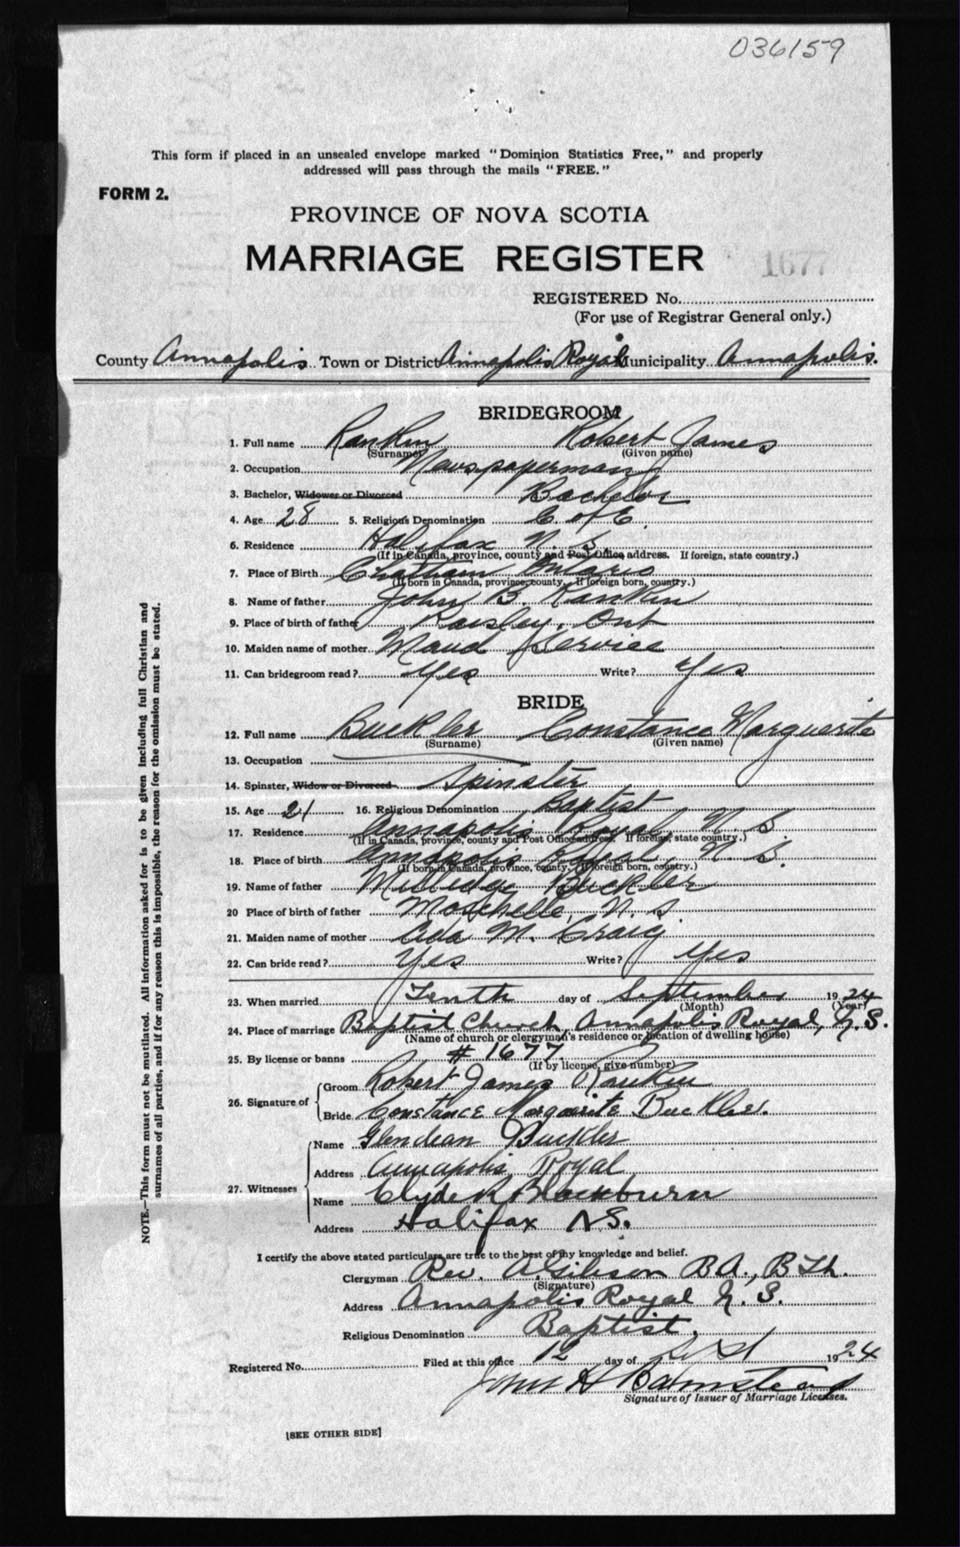 036159
This form if placed in an unsealed envelope marked "Dominion Statistics Free," and properly
addressed will pass through the mails "FREE."
FORM 2.
PROVINCE OF NOVA SCOTIA
MARRIAGE REGISTER
1677
REGISTERED No.
(For use of Registrar General only.)
County Annapolis Town or District Annapolis Royal Municipality Annapolis.
BRIDEGROOM
1. Full name Rankin Robert James
(Surname) (Given name)
2. Occupation Newspaperman
3. Bachelor, Widower or Divorced Bachelor
4. Age 28 5. Religious Denomination C. of E.
6. Residence Halifax N. S.
(If in Canada, province, county and Post Office address. If foreign, state country.)
7. Place of Birth Chatham Ontario
(If born in Canada, province, county. If foreign born, country.)
8. Name of father John B. Rankin
9. Place of birth of father Paisley, Ont
10. Maiden name of mother Maud Service
11. Can bridegroom read? Yes Write? Yes
BRIDE
12. Full name Buckler Constance Marguerite
(Surname) (Given name)
13. Occupation
14. Spinster, Widow or Divorced Spinster
15. Age 21 16. Religious Denomination Baptist
17. Residence Annapolis Royal, N. S.
(If in Canada, province, county and Post Office address. If foreign, state country.)
18. Place of birth Annapolis Royal, N. S.
(If born in Canada, province, county. If foreign born, country.)
19. Name of father Milledge Buckler
20 Place of birth of father Moschelle, N. S.
21. Maiden name of mother Ada M. Craig
22. Can bride read? Yes Write? Yes
23. When married Tenth day of September 1924
(Month) (Year)
24. Place of marriage Baptist Church, Annapolis Royal, N. S.
(Name of church or clergyman's residence or location of dwelling house)
25. By license or banns # 1677
(If by license, give number)
26. Signature of Groom Robert James Rankin
Bride Constance Marguerite Buckler.
27. Witnesses Name Glendean Buckler
Address Annapolis Royal
Name Clyde R Blackburn
Address Halifax NS.
I certify the above stated particulars are true to the best of my knowledge and belief.
Clergyman Rev. A. Gibson B.A., B Th.
(Signature)
Address Annapolis Royal N. S.
Religious Denomination Baptist.
Registered No. Filed at this office 12 day of Sept 1924
John H
Signature of Issuer of Marriage Licenses.
[SEE OTHER SIDE]
NOTE.—This form must not be mutilated. All information asked for is to be given including full Christian and
surnames of all parties, and if for any reason this is impossible, the reason for the omission must be stated.